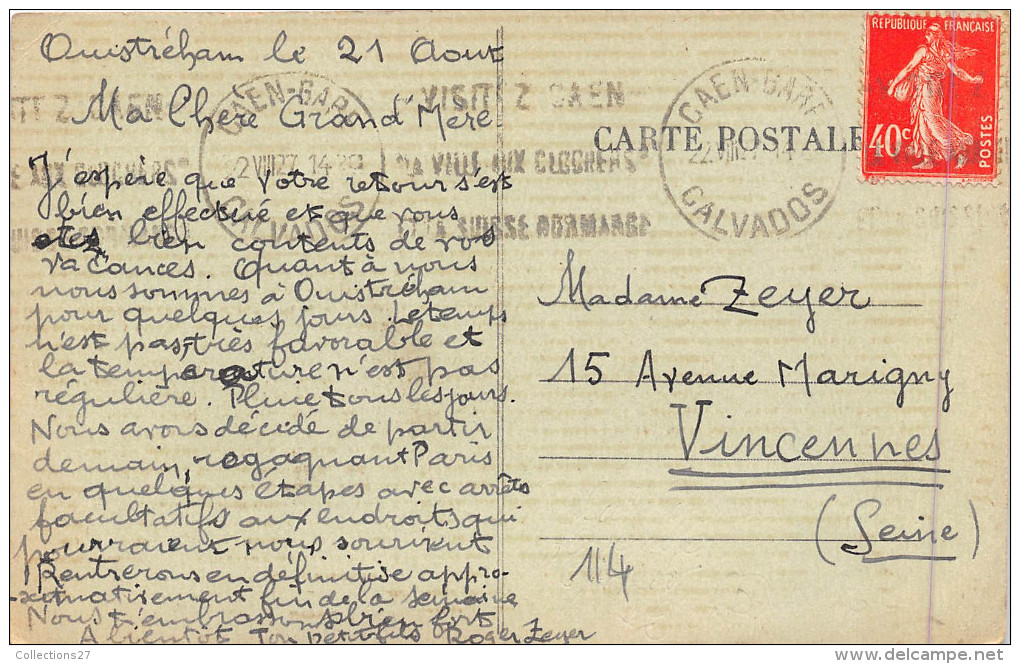 Ouistréham le 21 Aout
Ma Chère Grand'Mère
J'espère que votre retour s'est
bien effectué et que vous
etes bien contents de vos
vacances. Quant à nous
nous sommes à Ouistréham
pour quelques jours. Le temps
n'est pas très favorable et
la température n'est pas
régulière. Pluie tous les jours.
Nous avons décidé de partir
demain, regagnant Paris
en quelques étapes avec arrêts
facultatifs aux endroits qui
pourraient nous sourirent
Rentrerons en définitive appro-
-ximativement fin de la semaine
Nous t'embrassons bien fort
A bientôt Ton petit fils Roger Zeyer
VISITEZ CAEN
"LA VILLE AUX CLOCHERS"
ET LA SUISSE NORMANDE
CAEN-GARE
22 VIII 27
CALVADOS
CARTE POSTALE
CAEN-GARE
22 VIII 27
CALVADOS
REPUBLIQUE FRANÇAISE
40c
POSTES
Madame Zeyer
15 Avenue Marigny
Vincennes
(Seine)
114
Collections27
www.delcampe.net